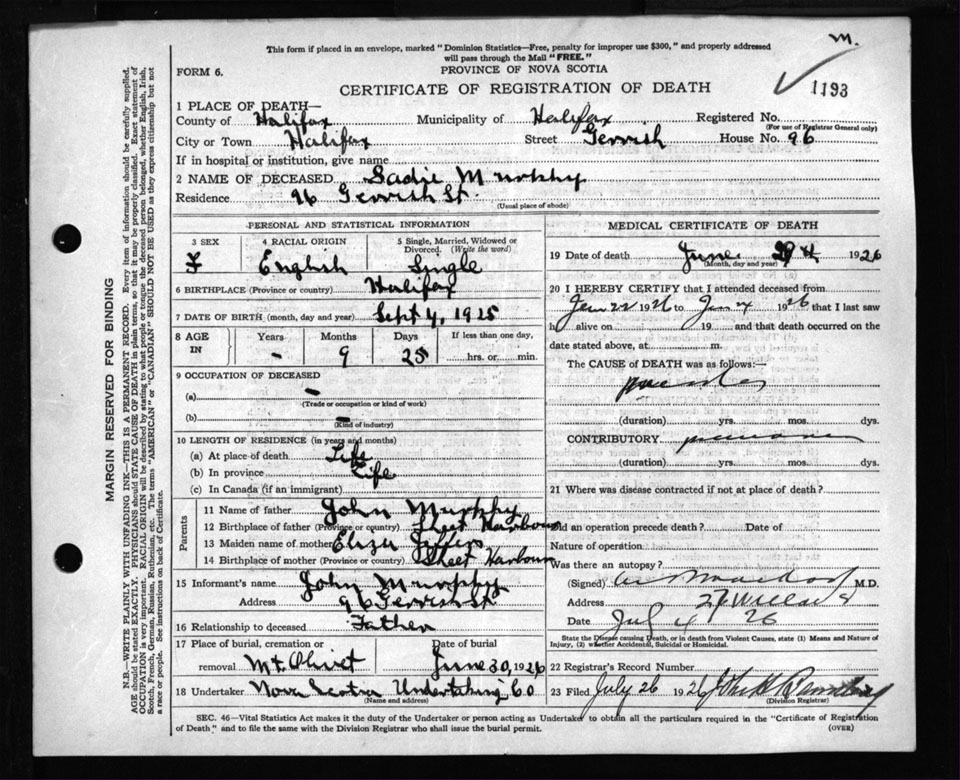 m.
This form if placed in an envelope, marked "Dominion Statistics—Free, penalty for improper use $300," and properly addressed
will pass through the Mail "FREE."
FORM 6.
PROVINCE OF NOVA SCOTIA
CERTIFICATE OF REGISTRATION OF DEATH
1193
1 PLACE OF DEATH—
County of Halifax Municipality of Halifax Registered No.
(For use of Registrar General only)
City or Town Halifax Street Gerrish House No. 96
If in hospital or institution, give name
2 NAME OF DECEASED Sadie Murphy
Residence 96 Gerrish St.
(Usual place of abode)
PERSONAL AND STATISTICAL INFORMATION
3 SEX 4 RACIAL ORIGIN 5 Single, Married, Widowed or
Divorced. (Write the word)
F English Single
6 BIRTHPLACE (Province or country) Halifax
7 DATE OF BIRTH (month, day and year) Sept 4, 1925
8 AGE IN Years Months Days If less than one day,
- 9 25 hrs. or min.
9 OCCUPATION OF DECEASED
(a) —
(Trade or occupation or kind of work)
(b) —
(Kind of industry)
10 LENGTH OF RESIDENCE (in years and months)
(a) At place of death Life
(b) In province Life
(c) In Canada (if an immigrant)
Parents
11 Name of father John Murphy
12 Birthplace of father (Province or country) Sheet Harbour
13 Maiden name of mother Eliza Jeffers
14 Birthplace of mother (Province or country) Sheet Harbour
15 Informant's name John Murphy
Address 96 Gerrish St
16 Relationship to deceased Father
17 Place of burial, cremation or Date of burial
removal Mt. Olivet June 30, 1926
18 Undertaker Nova Scotia Undertaking Co
(Name and address)
MEDICAL CERTIFICATE OF DEATH
19 Date of death June 29th 1926
(Month, day and year)
20 I HEREBY CERTIFY that I attended deceased from
Jan 22 1926 to Jan 4 1926 that I last saw
h alive on 19 and that death occurred on the
date stated above, at m.
The CAUSE of DEATH was as follows:—
(duration) yrs. mos. dys.
CONTRIBUTORY
(duration) yrs. mos. dys.
21 Where was disease contracted if not at place of death?
Did an operation precede death? Date of
Nature of operation
Was there an autopsy?
(Signed) M.D.
Address
Date Jul 4 26
State the Disease causing Death, or in death from Violent Causes, state (1) Means and Nature of
Injury, (2) whether Accidental, Suicidal or Homicidal.
22 Registrar's Record Number
23 Filed July 26 1926
(Division Registrar)
SEC. 46—Vital Statistics Act makes it the duty of the Undertaker or person acting as Undertaker to obtain all the particulars required in the "Certificate of Registration
of Death", and to file the same with the Division Registrar who shall issue the burial permit.
(OVER)
MARGIN RESERVED FOR BINDING
N.B.—WRITE PLAINLY WITH UNFADING INK—THIS IS A PERMANENT RECORD. Every item of information should be carefully supplied.
AGE should be stated EXACTLY. PHYSICIANS should STATE CAUSE OF DEATH in plain terms, so that it may be properly classified. Exact statement of
OCCUPATION is very important. RACIAL ORIGIN will be described by stating to what people or tongue the deceased person belonged, whether English, Irish,
Scotch, French, German, Russian, Ruthenian, etc. The terms "AMERICAN" or "CANADIAN" SHOULD NOT BE USED as they express citizenship but not
a race or people. See instructions on back of Certificate.